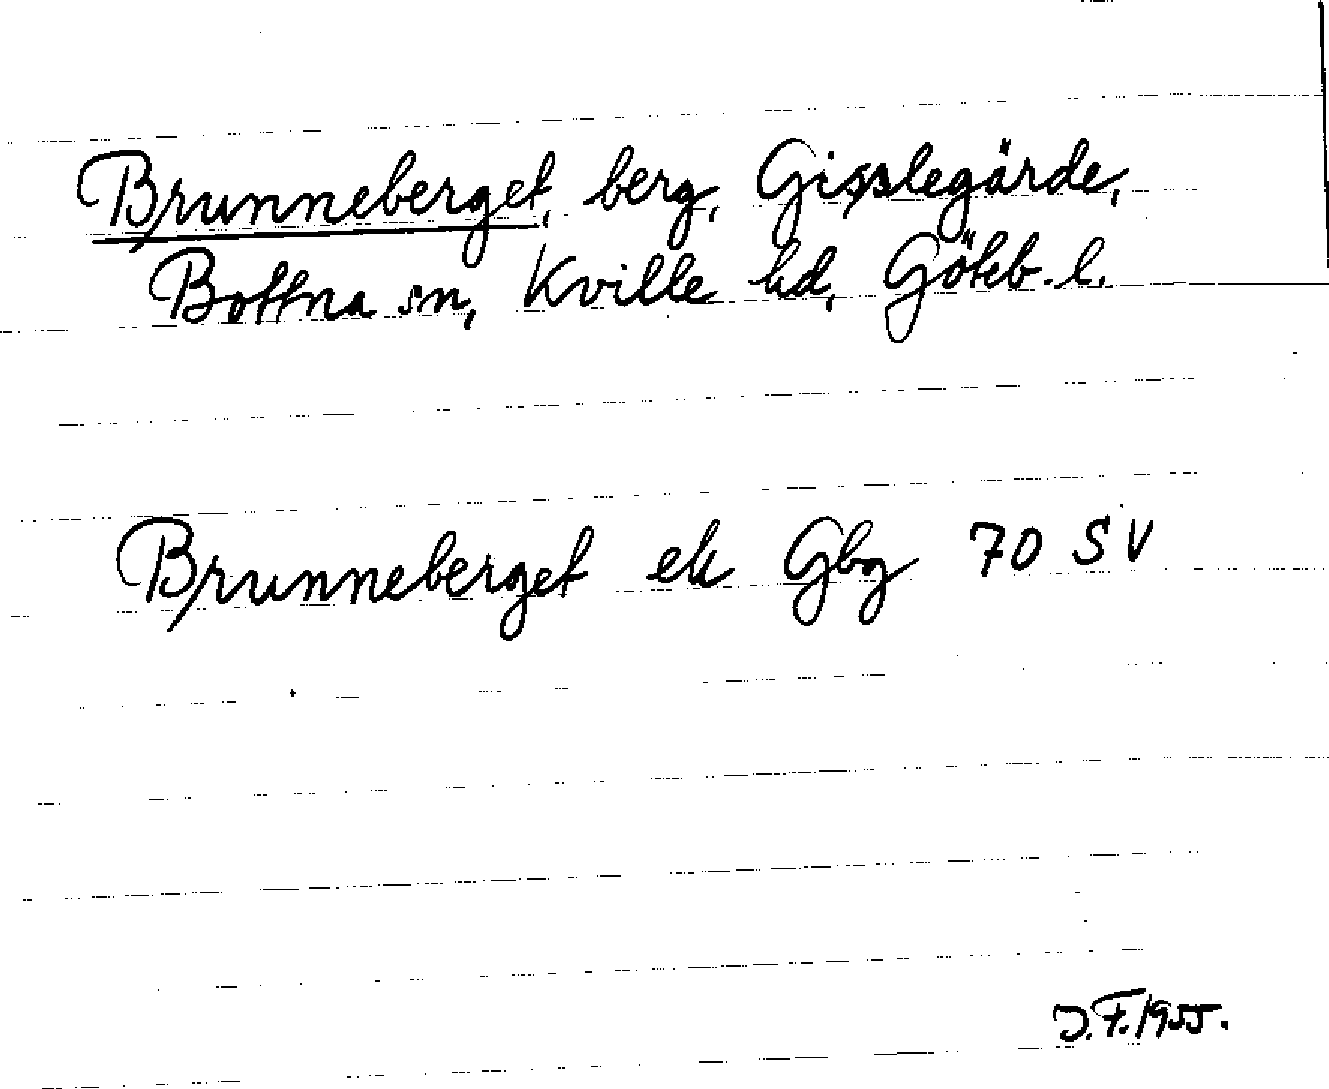 Brunneberget, berg, Gisslegärde,
Bottna sn, Kville hd, Göteb. l.
Brunneberget ek Gbg 70 SV
J.F. 1955.